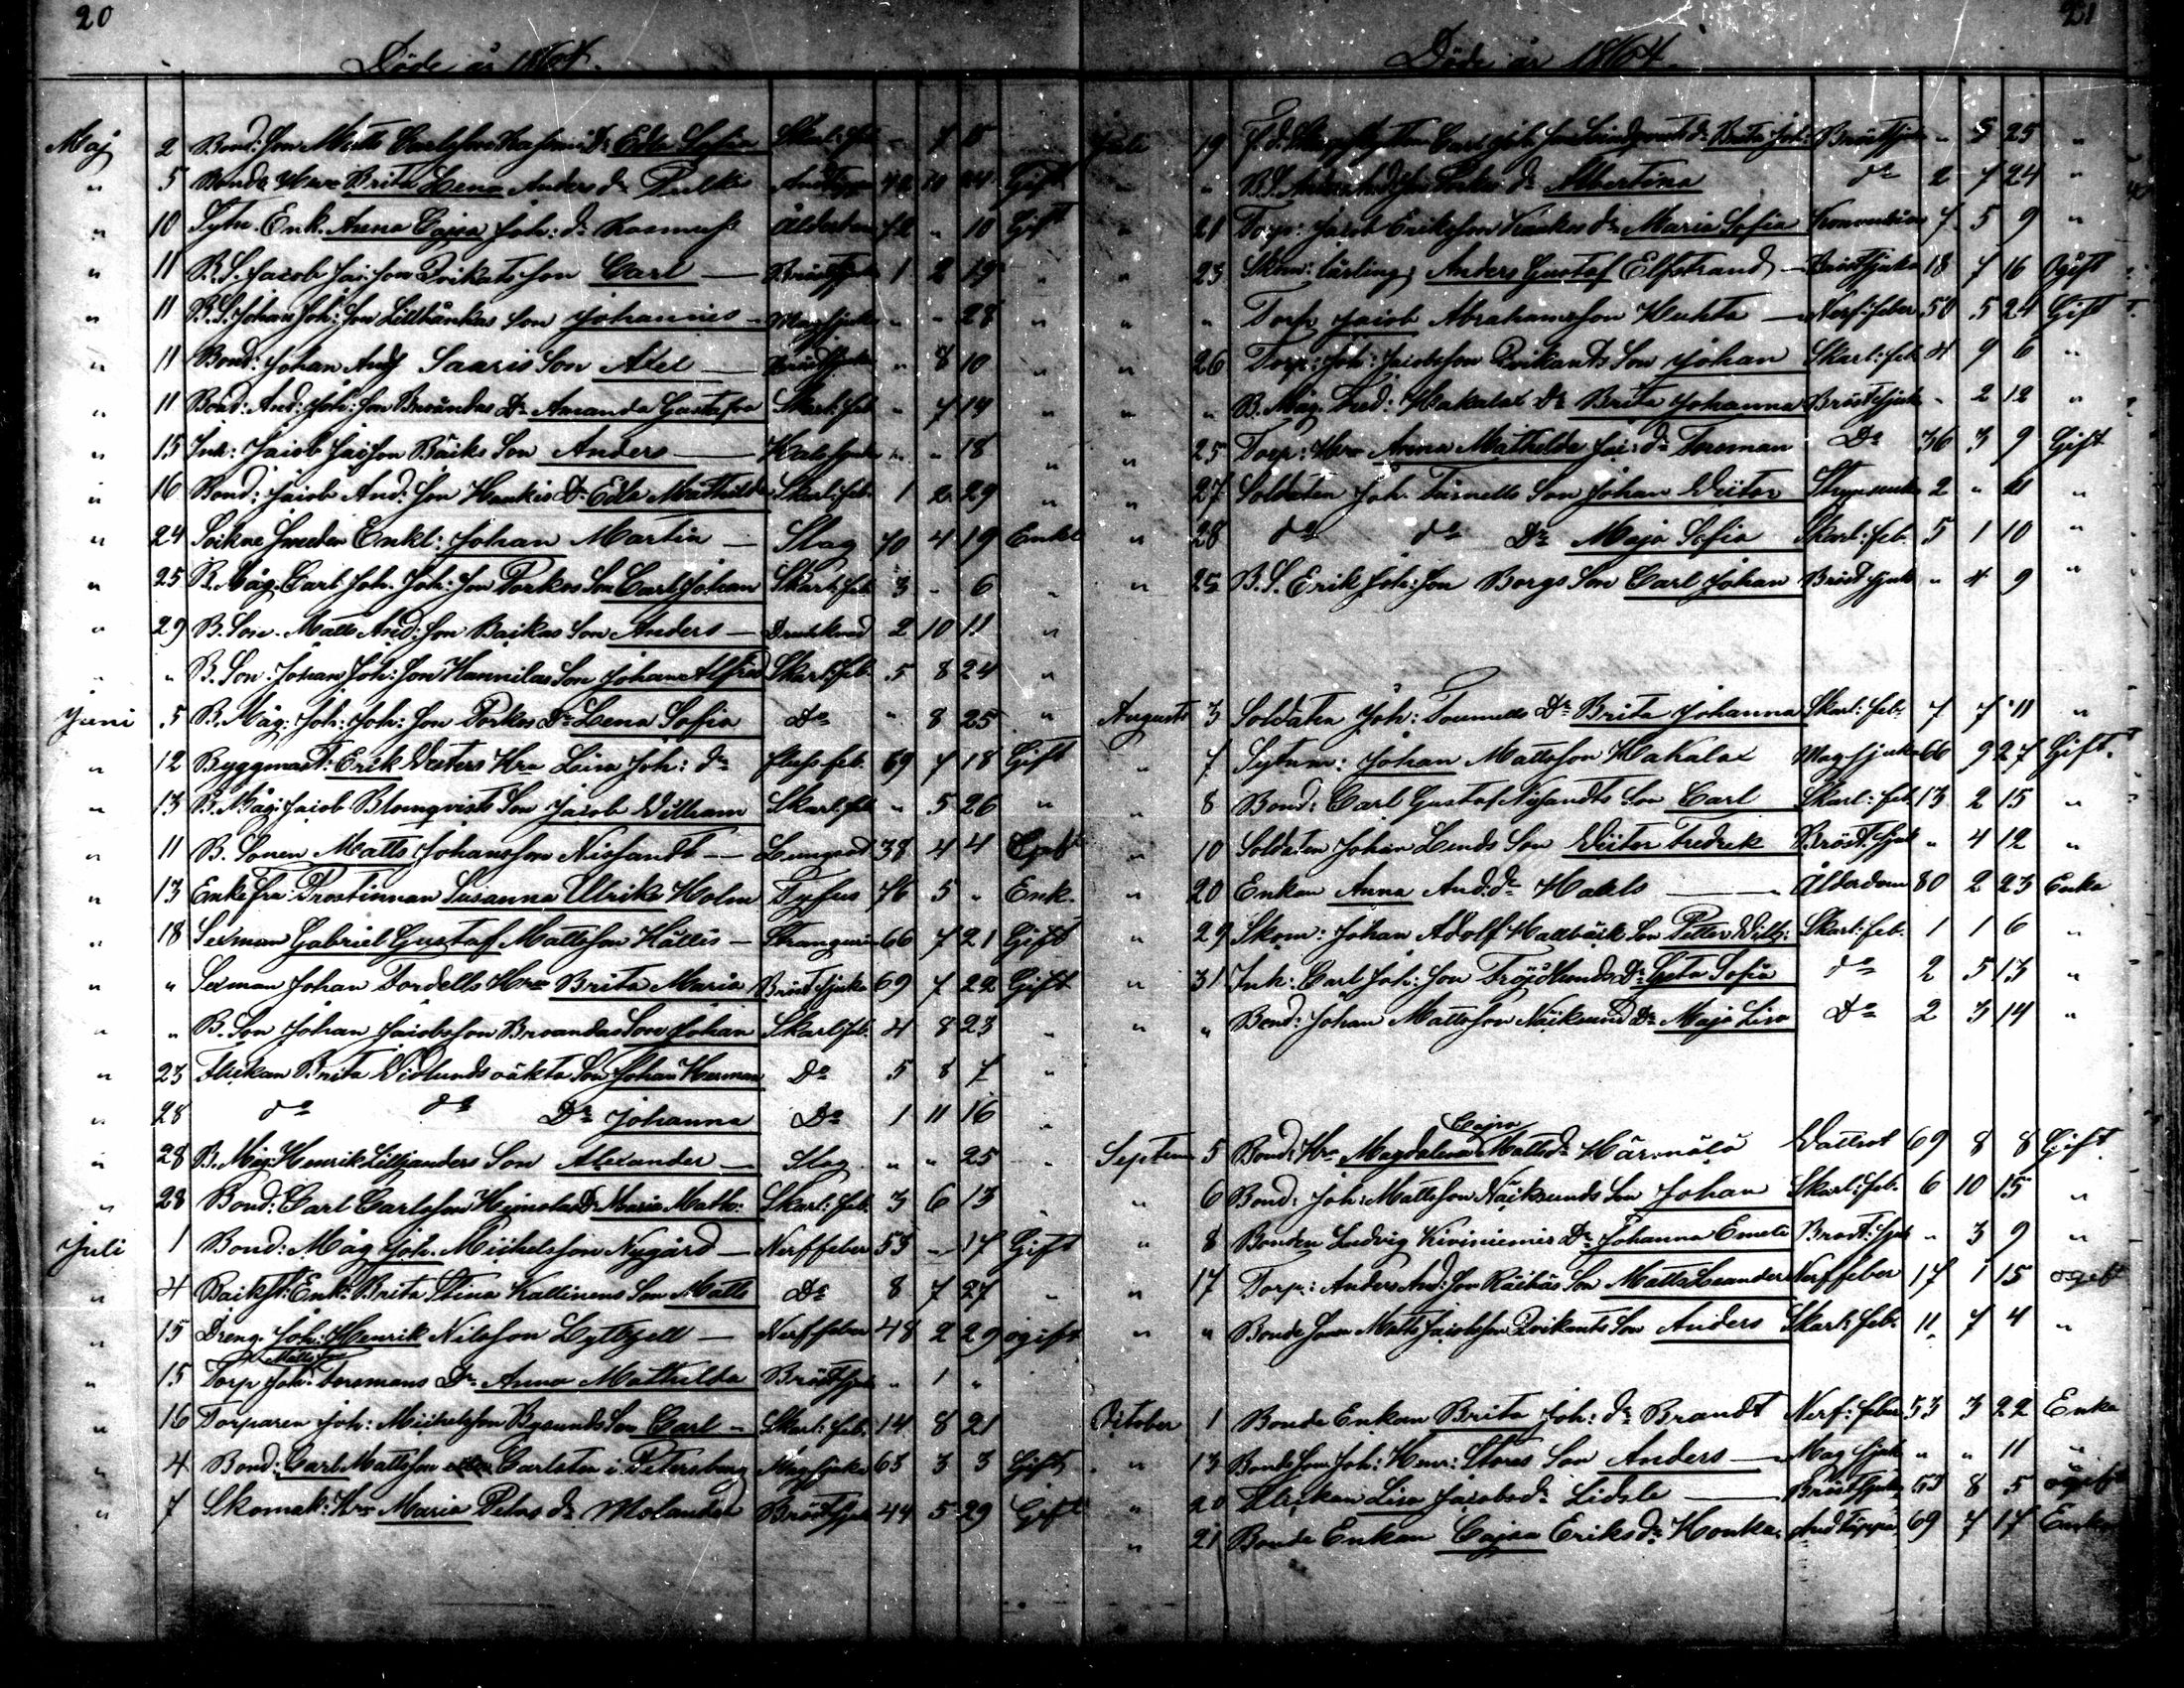 20
Döde år 1864.
Maj 2 Bond: Son Matts Carlsson Dr Edla Sofia Skarl: feb - 7 15
" 5 Bonde Hru Brita Lena Anders dr Pulkis Andtäppa 42 10 24 Gift
" 10 Sytn. Enk. Anna Cajsa Joh: dr Ålderdom 72 " 10 Gift
" 11 B. S. Jacob Jac: son Qvikants son Carl — Bröstsjuka 1 2 19 "
" 11 B. S. Johan Joh: son Lillbånkas Son Johannes - Magsjuka " - 28 "
" 11 Bond: Johan And Saaris Son Axel — Bröstsjuka " 8 10 "
" 11 Bond: And: Joh: son Broändas Dr Amanda Gustafva Skarl: feb " 7 14 "
" 15 Inh: Jacob Jacson Bäcks Son Anders — Halssjuka " " 18 "
" 16 Bond: Jacob And: son Haukis Dr Edla Mathilda Skarl: feb. 1 2 29 "
" 24 Sockne Smeden Enkl: Johan Martin — Slag 70 4 19 Enkl
" 25 B. Måg. Carl Joh. Joh: son Porkos Son Carl Johan Skarl: feb. 3 - 6 "
" 29 B. Son. Matts And: son Baikas Son Anders — 2 10 11 "
" " B. Son. Johan Joh: son Hannilas Son Johan Alfred Skarl: feb. 5 8 24 "
Juni 5 B. Måg: Joh: Joh: son Porkos Dr Lena Sofia Do " 8 25 "
" 12 Byggmast: Erik Westers Hru Lisa Joh: dr fluss feb. 69 7 18 Gift
" 13 B. Måg: Jacob Blomqvists Son Jacob Wilhelm Skarl: feb " 5 26 "
" 11 B. Sonen Matts Johansson Nissandt — Lungsot 38 4 4 Ogift
" 13 Enkefru Prostinnan Susanna Ulrika Holm Tyfus 76 5 " Enk.
" 18 Sexman Gabriel Gustaf Mattsson Källis — Stranguri 66 7 21 Gift
" " Sexman Johan Tordells Hru Brita Maria Bröstsjuka 69 7 22 Gift
" " B. Son Johan Jacobsson Broandas Son Johan Skarl: feb. 4 8 23 "
" 23 Flickan Brita Widlunds oäkta Son Johan Herman Do 5 8 7 "
" 28 do do Dr Johanna Do 1 11 16 "
" 28 B. Måg: Henrik Liljanders Son Alexander — Slag " " 25 "
" 28 Bond: Carl Carlsson Heimolas Dr Maria Math: Skarl: feb. 3 6 13
Juli 1 Bond: Måg Joh. Michelsson Nygård — Nerffeber 55 - 17 Gift
" 4 Backst: Enk: Brita Stina Kallinens Son Matts Do 8 7 27 "
" 15 Dreng. Joh: Henrik Nilsson Lyttzell — Nerffeber 48 2 29 ogift
" 15 Torp Joh: Mattsson Forsmans Dr Anna Mathilda Bröstsjuk " 1 "
" 16 Torparen Joh: Michelsson Bysunds Son Carl — Skarl: feb. 14 8 21
" 4 Bond: Carl Mattsson Carlsten i Petersburg Magsjuka 63 3 3 Gift
" 7 Skomak: Hru Maria Petrs dr Molander Bröstsjuk 44 5 29 Gift
21
Döde år 1864.
Juli 19 F. d. Carl Joh. son dr Brita Joh: Bröstsjuk " 5 25 "
" " B. S. dr Albertina do 2 7 24 "
" 21 Torp: Jacob Eriksson Kaukos dr Maria Sofia 7 5 9 "
" 23 Skom: lärling: Anders Gustaf Elfstrand — Bröstsjuka 18 7 16 Ogift
" " Torp Jacob Abrahamsson Huhta — Nerf: feber 50 5 24 Gift
" 26 Torp: Joh: Jacobsson Qvikants Son Johan Skarl: feb 4 9 6 "
" " B. Måg. Hakalax Dr Brita Johanna Bröstsjuk " 2 12 "
" 25 Torp: Hru Anna Mathilda Jac: dr Forsman Do 36 3 9 Gift
" 27 Soldaten Joh. Tarnells Son Johan Victor 2 " 21 "
" 28 do do Dr Maja Sofia Skarl: feb. 5 1 10 "
" 25 B. S. Erik Joh: son Borgs Son Carl Johan Bröstsjuk " 4 9 "
Augusti 3 Soldaten Joh: Dr Brita Johanna Skarl: feb. 7 7 11 "
" 7 Sytnin: Johan Mattsson Hakalax Magsjuka 66 9 27 Gift.
" 8 Bond: Carl Gustaf Nissandts Son Carl Skarl: feb. 13 2 15 "
" 10 Soldaten Johan Lunds Son Victor Fredrek Bröstsjuk " 4 12 "
" 20 Enkan Anna And: dr Hakls — Ålderdom 80 2 23 Enka
" 29 Skom: Johan Adolf Hallbäck Son Petter Wilh: Skarl: feb. 1 1 6 "
" 31 Inh: Carl Joh: son Fröjdlunds Dr Greta Sofia do 2 5 13 "
" " Bond: Johan Mattsson Näcksund Dr Maja Lisa Do 2 3 14 "
Septem 5 Bond: Hru Magdalena Cajsa Mattsdr Härmälä Wattsot 69 8 8 Gift
" 6 Bond: Joh: Mattsson Näcksunds Son Johan Skarl: feb. 6 10 15 "
" 8 Bonden Ludvig Kiviniemis Dr Johanna Emele Bröst: sjuk " 3 9 "
" 17 Torp: Anders And: son Räihäs Son Matts Leander Nerffeber 17 1 15 ogift
" " Bonde Sonen Matts Jacobsson Qvikants Son Anders Skarl: feb. 11 7 4 "
October 1 Bonde Enkan Brita Joh: dr Brandt Nerf: feber 53 3 22 Enka
" 13 Bonde Son Joh: Henr: Stores Son Anders — Mag sjuk " " 11 "
" 20 Flickan Lisa Jacobsdr Lidsle — Bröstsjuk 53 8 5 ogift
" 21 Bonde Enkan Cajsa Eriksdr Honka. Andtäppa 69 7 17 Enka